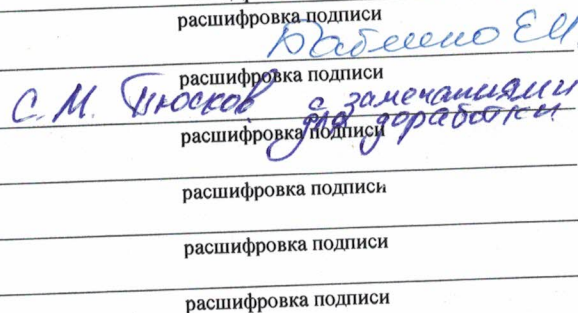 расшифровка подписи
Бабенко Е.И.
расшифровка подписи
С. М. Тюсков с замечаниями
для доработки.
расшифровка подписи
расшифровка подписи
расшифровка подписи
расшифровка подписи